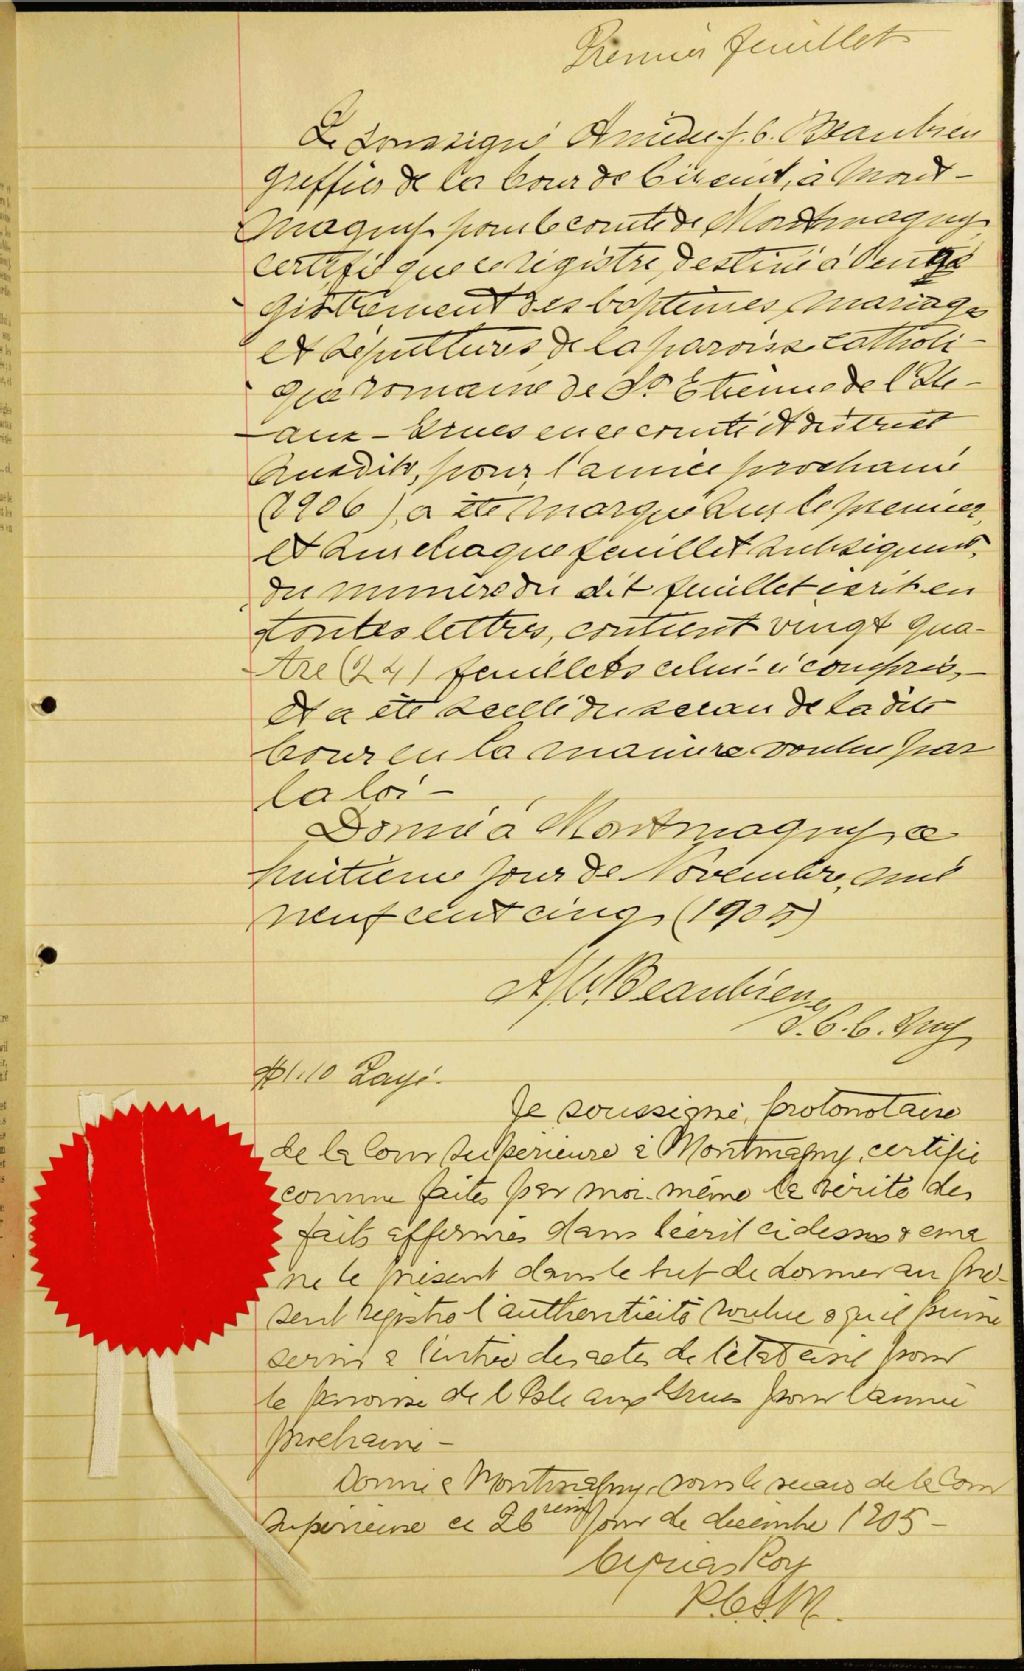 Premier feuillet
Le soussigné Amédée J. C. Beaubien
greffier de la Cour de Circuit, à Mont-
magny pour le comté de Montmagny
certifie que ce régistre, destiné à l'enré
gistrement des baptêmes, mariages
et sépultures, de la paroisse catholi-
que romaine de St Etienne de l'Ile-
aux-Grues en ce comté et district
susdits, pour l'année prochaine
(1906), a été marqué sur le premier,
et sur chaque feuillet subséquent,
du numéro du dit feuillet écrit en
toutes lettres, contient vingt qua-
tre (24) feuillets celui-ci compris,-
et a été scellé du sceau de la dite
Cour en la manière voulue par
la loi-
Donné à Montmagny, ce
huitième jour de Novembre, mil
neuf cent cinq, (1905)
A. J. C. Beaubien
G. C. C. Mgy
$1.10 Payé.
Je soussigné, protonotaire
de la Cour Supérieure à Montmagny, certifie
comme faites par moi-même la vérité des
faits affermés dans l'écrit ci dessus &
ne le présent dans le but de donner au pré-
sent régistre l'authenticité voulue & qu'il puisse
servir à l'entrée des actes de l'état civil pour
la paroisse de l'Isle aux Grues pour l'année
prochaine-
Donné à Montmagny, sous le sceau de la Cour
Supérieure ce 26 ième jour de décembre 1905-
Cyprias Roy
P.C.S.M.